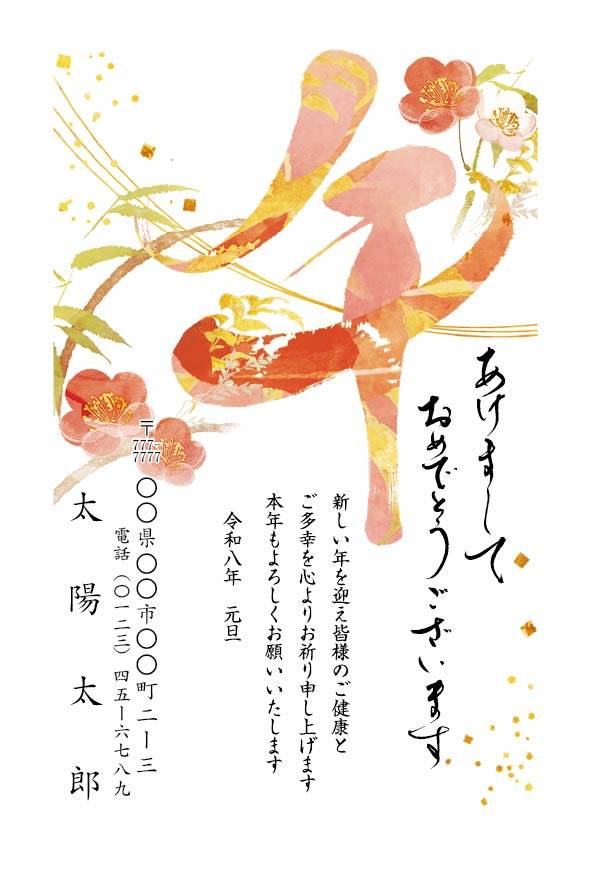 午
あけまして
おめでとうございます
新しい年を迎え皆様のご健康と
ご多幸を心よりお祈り申し上げます
本年もよろしくお願いいたします
令和八年　元旦
〒777-7777
〇〇県〇〇市〇〇町二ー三
電話（〇一二三）四五ー六七八九
太陽太郎